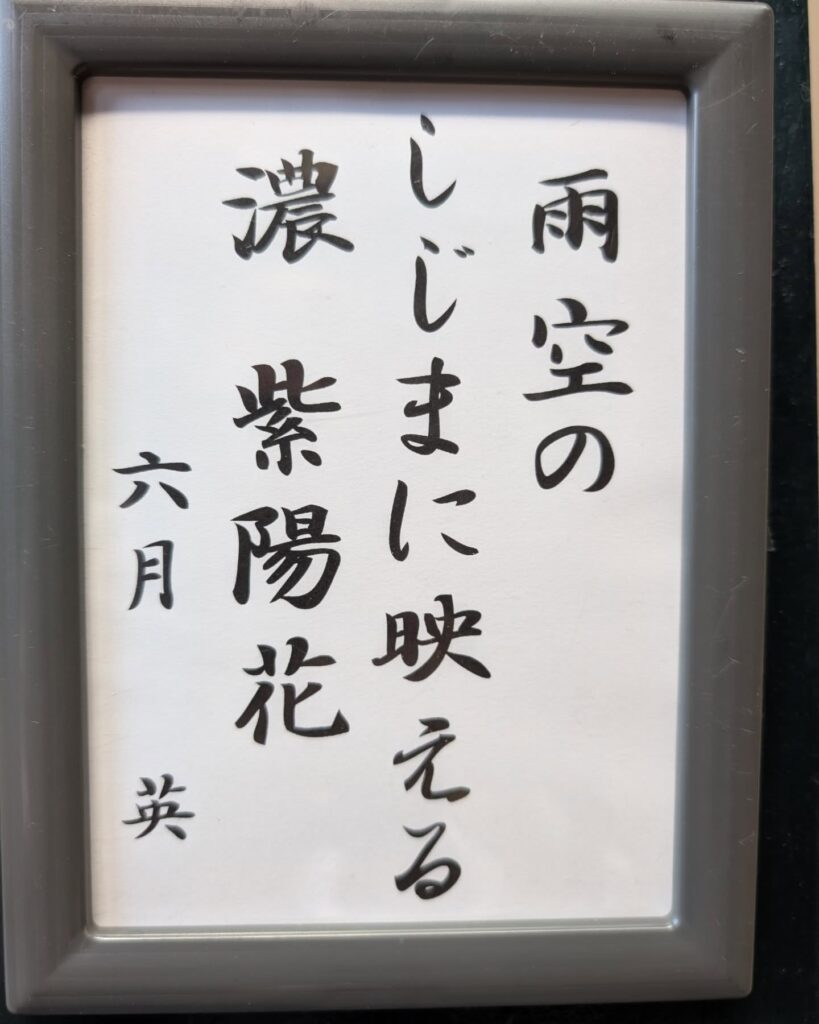 雨空の
しじまに映える
濃 紫陽花
六月 英